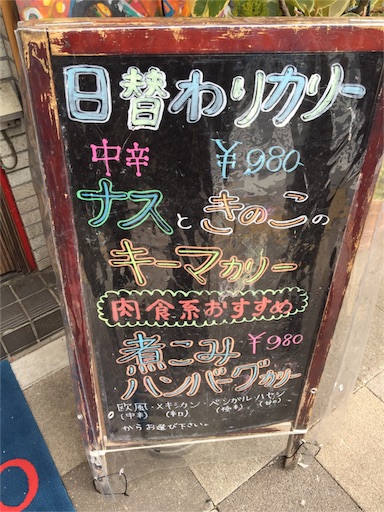 日替わりカリー
中辛 ¥980
ナスときのこの
キーマカリー
肉食系おすすめ
煮こみ ¥980
ハンバーグカリー
欧風・メキシカン・ベンガル・ハヤシ
(中辛) (辛口) (極辛) (甘口)
からお選び下さい。